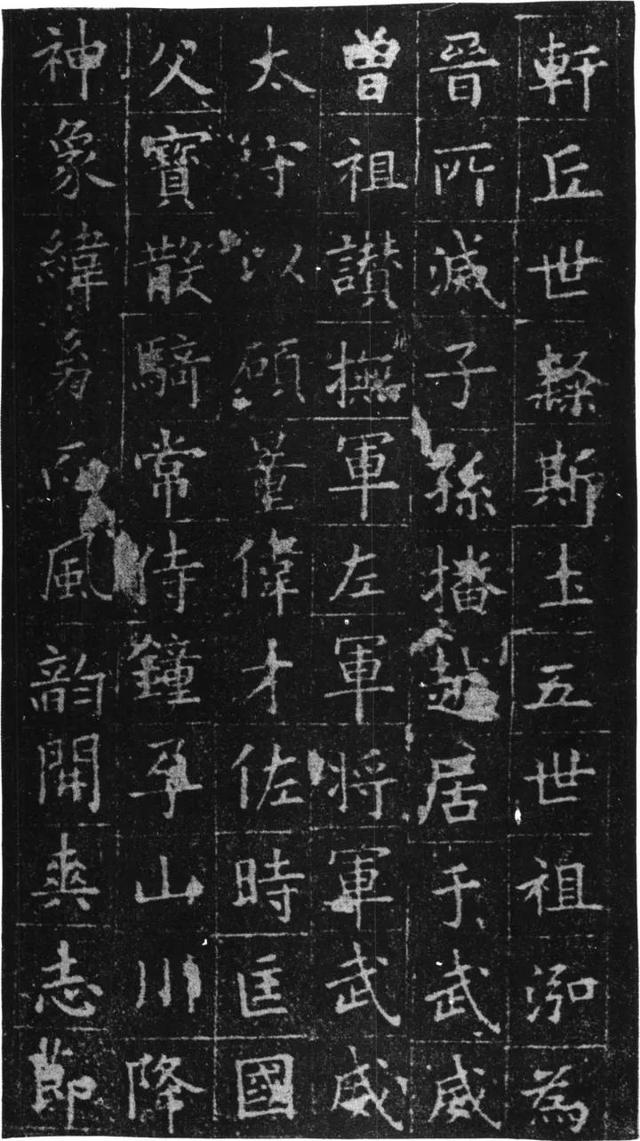 軒丘世𣤶斯土五世祖泓為
晉所滅子孫播越居于武威
曾祖讚撫軍左軍將軍武威
太守以碩量偉才佐時匡國
父寶散騎常侍鐘孕山川降
神象緯器雨風韵開爽志節